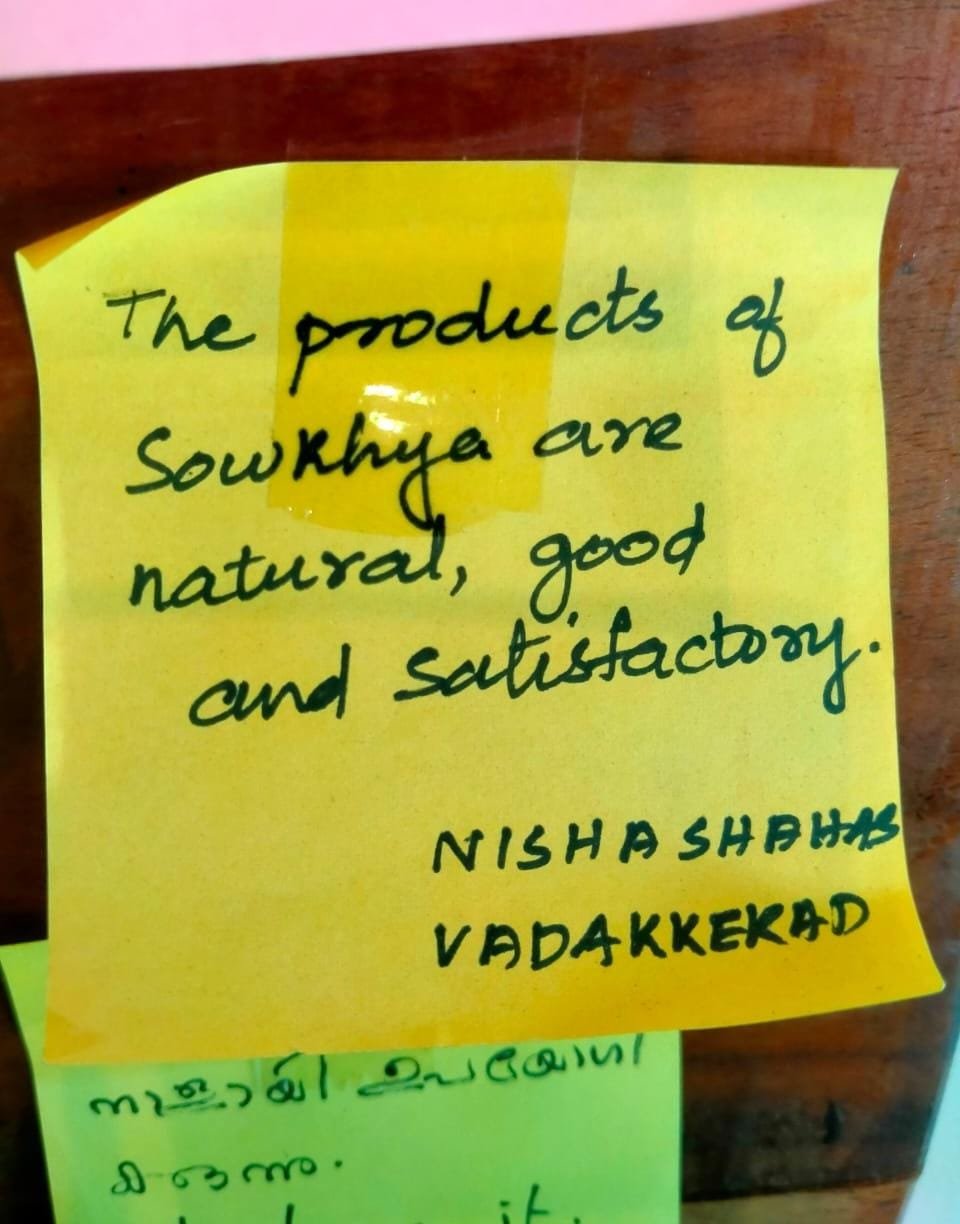 The products of
Sowkhya are
natural, good
and satisfactory.
NISHA SHAHAS
VADAKKEKAD
ഉപയോഗി
it.